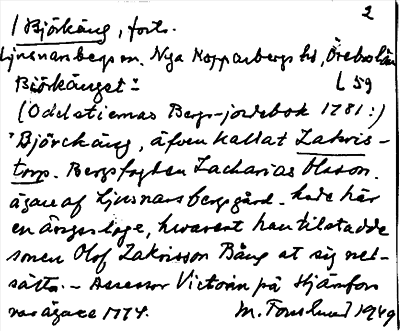 2
/ Björkäng, forts.
Ljusnarsbergs sn. Nya Kopparbergs hd, Örebro län
Björkänget =
L 59
(Oddstiernas Bergs-jordebok 1781:)
"Björckäng, äfven kallat Zakris-
torp. Bergsfogden Zacharias Olsson,
ägare af Ljusnarsbergsgård. hade här
en ängsloge, hvarest han tilstadde
sonen Olof Zakrisson Bång at sig ned-
sätta. – Assessor Victorin på Stjärnfors
var ägare 1774.
M. Tonslund 1949